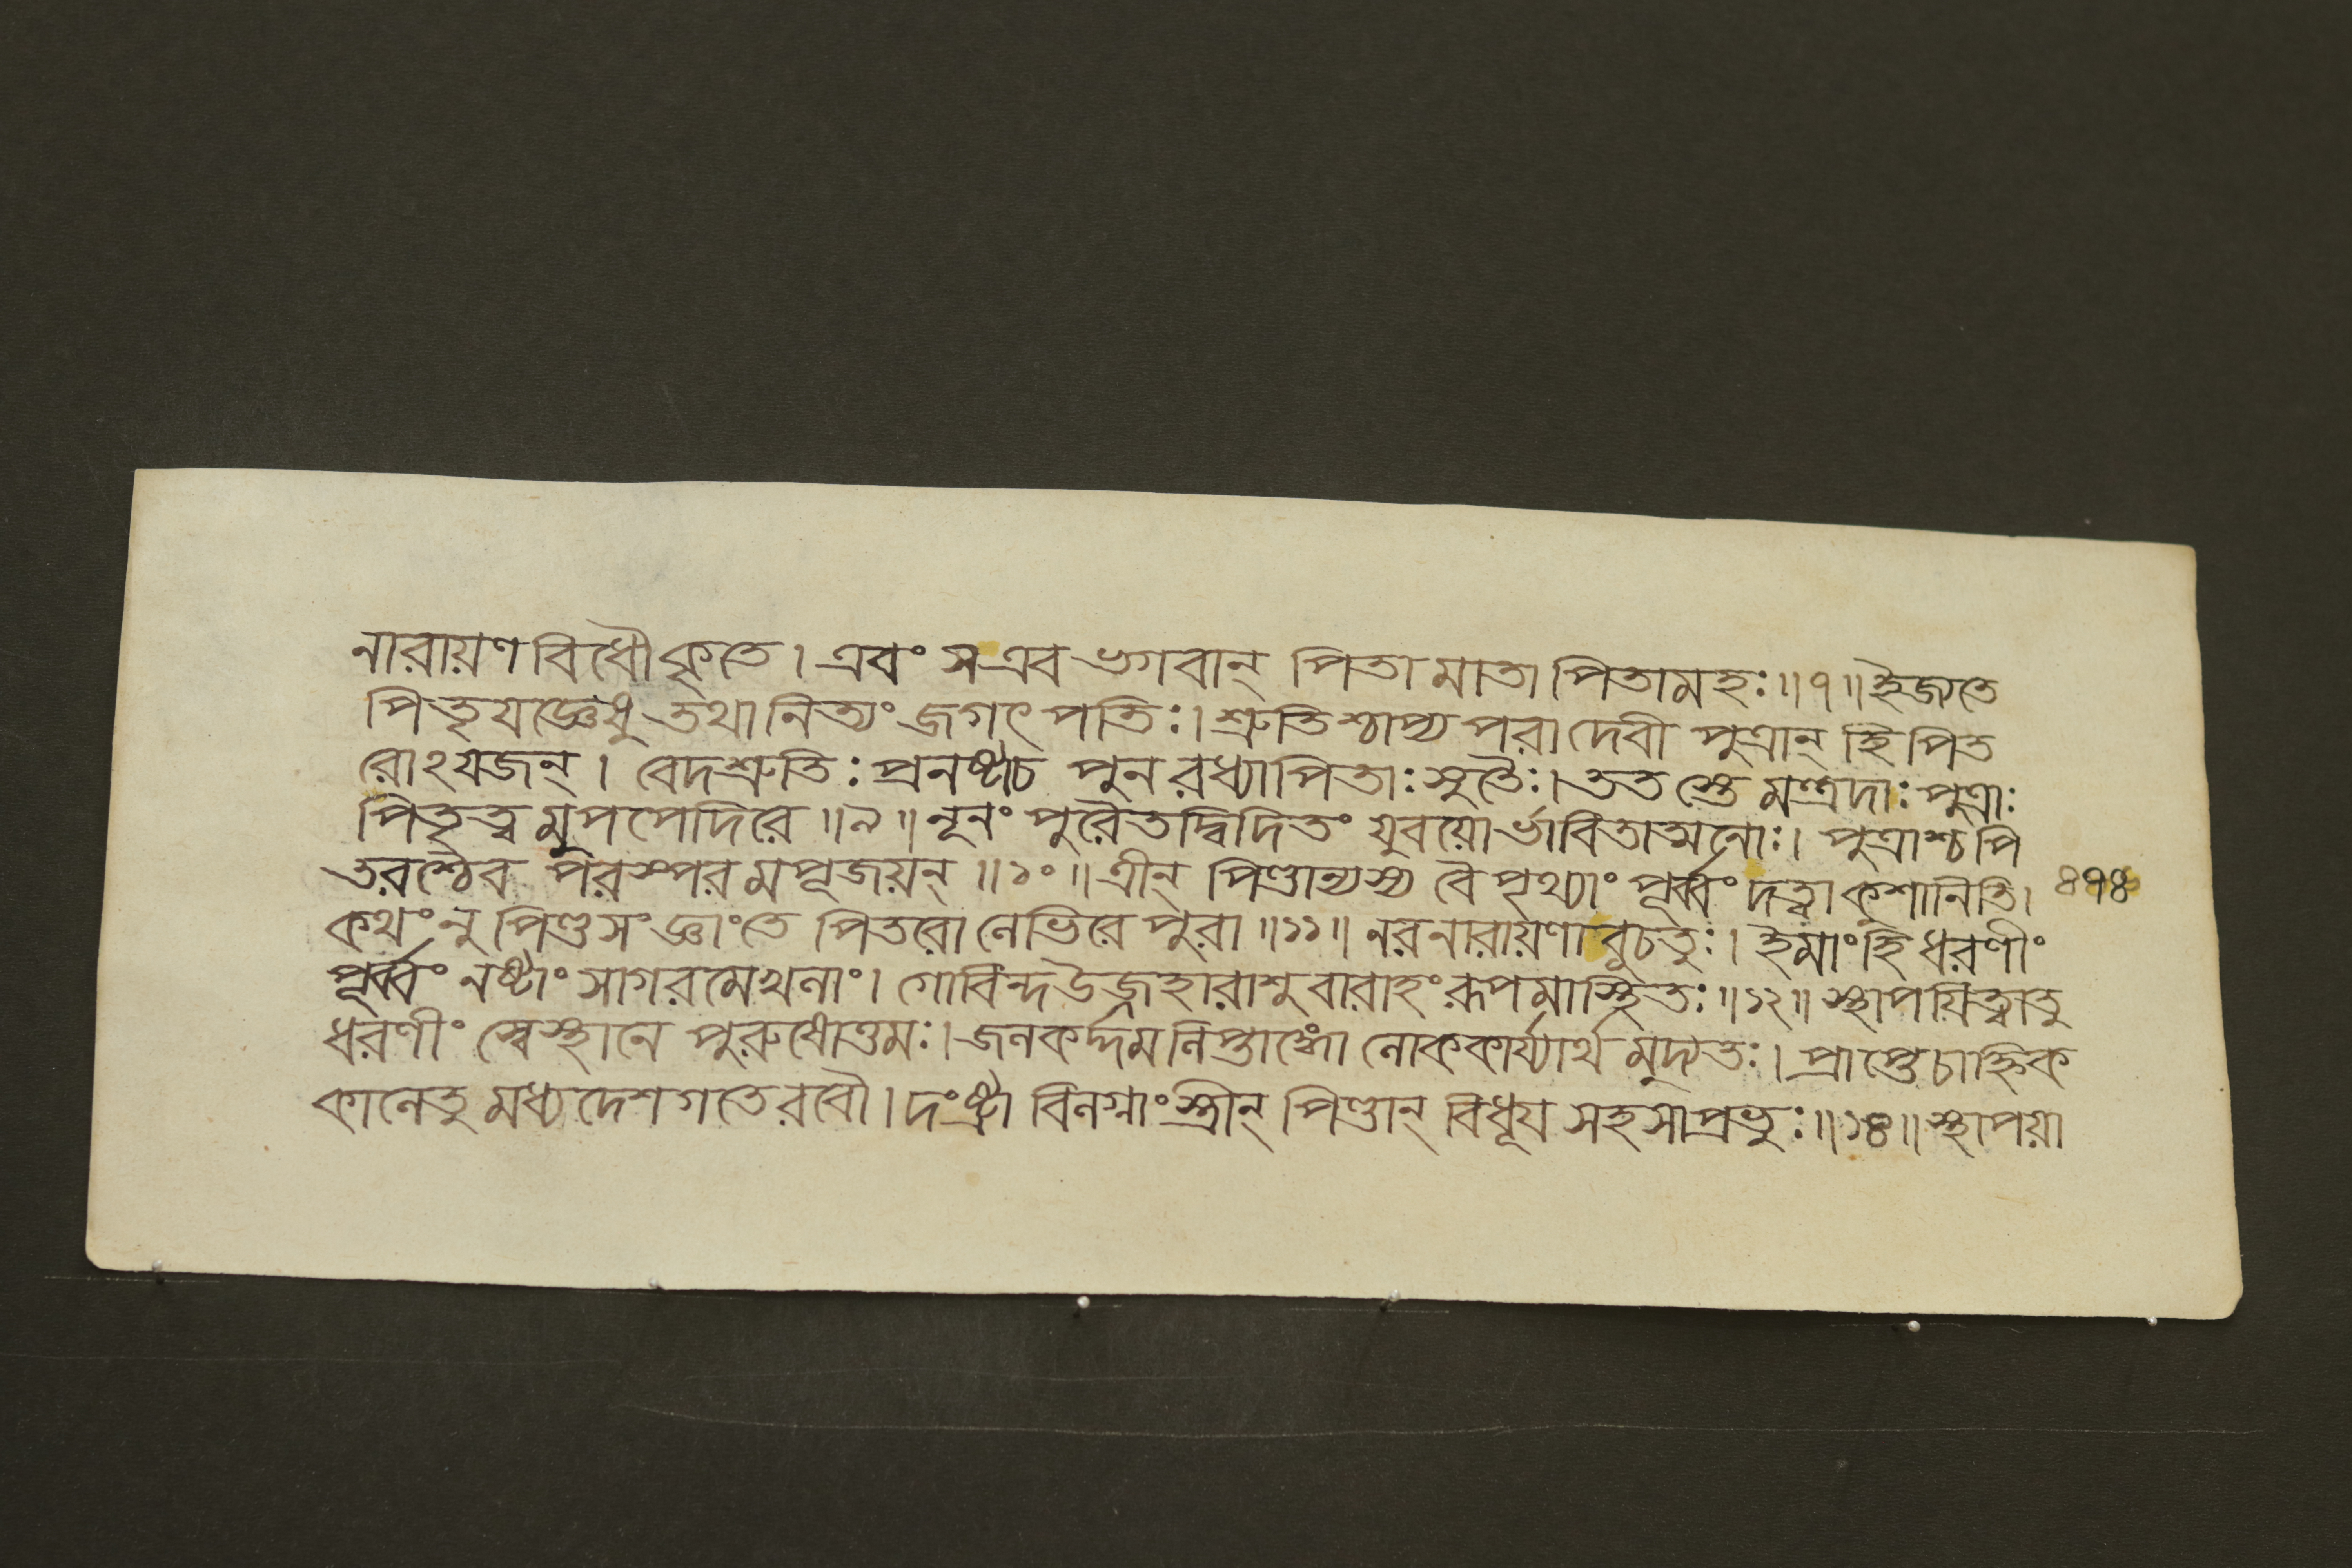 নারায়ণ বিধৌ কৃতে। এবং স এব ভগবান্ পিতা মাতা পিতামহঃ॥৭॥ ইজ্যতে
পিতৃযজ্ঞেষু তথা নিত্যং জগৎপতিঃ। শ্রুতিশ্চাপ্য পরা দেবী পুত্রান্ হি পিত
রোঽযজন্। বেদশ্রুতিঃ প্রনষ্টা চ পুনরধ্যাপিতাঃ সুতৈঃ। ততস্তে মন্ত্রদাঃ পুত্রাঃ
পিতৃত্বমুপপেদিরে॥৯॥ নূনং পুরৈতদ্বিদিতং যুবয়োর্ভাবিতাত্মনোঃ। পুত্রাশ্চ পি
তরশ্চৈব পরস্পরমপূজয়ন্॥১০॥ ত্রীন্ পিণ্ডান্ন্যস্য বৈ পৃথ্যাং পূর্ব্বং দত্ত্বা কুশানিতি। ৪৭৪
কথং নু পিণ্ডসংজ্ঞাং তে পিতরো লেভিরে পুরা॥১১॥ নরনারায়ণাবুচতুঃ। ইমাং হি ধরণীং
পূর্ব্বং নষ্টাং সাগরমেখলাং। গোবিন্দ উজ্জহারাশু বারাহং রূপমাস্থিতঃ॥১২॥ স্থাপয়িত্বা তু
ধরণীং স্বে স্থানে পুরুষোত্তমঃ। জলকর্দ্দমলিপ্তাঙ্গো লোককার্য্যার্থমুদ্যতঃ। প্রাপ্তে চাহ্নিক
কালে তু মধ্যদেশগতে রবৌ। দংষ্ট্রা বিলগ্নাং স্ত্রীন্ পিণ্ডান্ বিধূয় সহসা প্রভুঃ॥১৪॥ স্থাপয়া